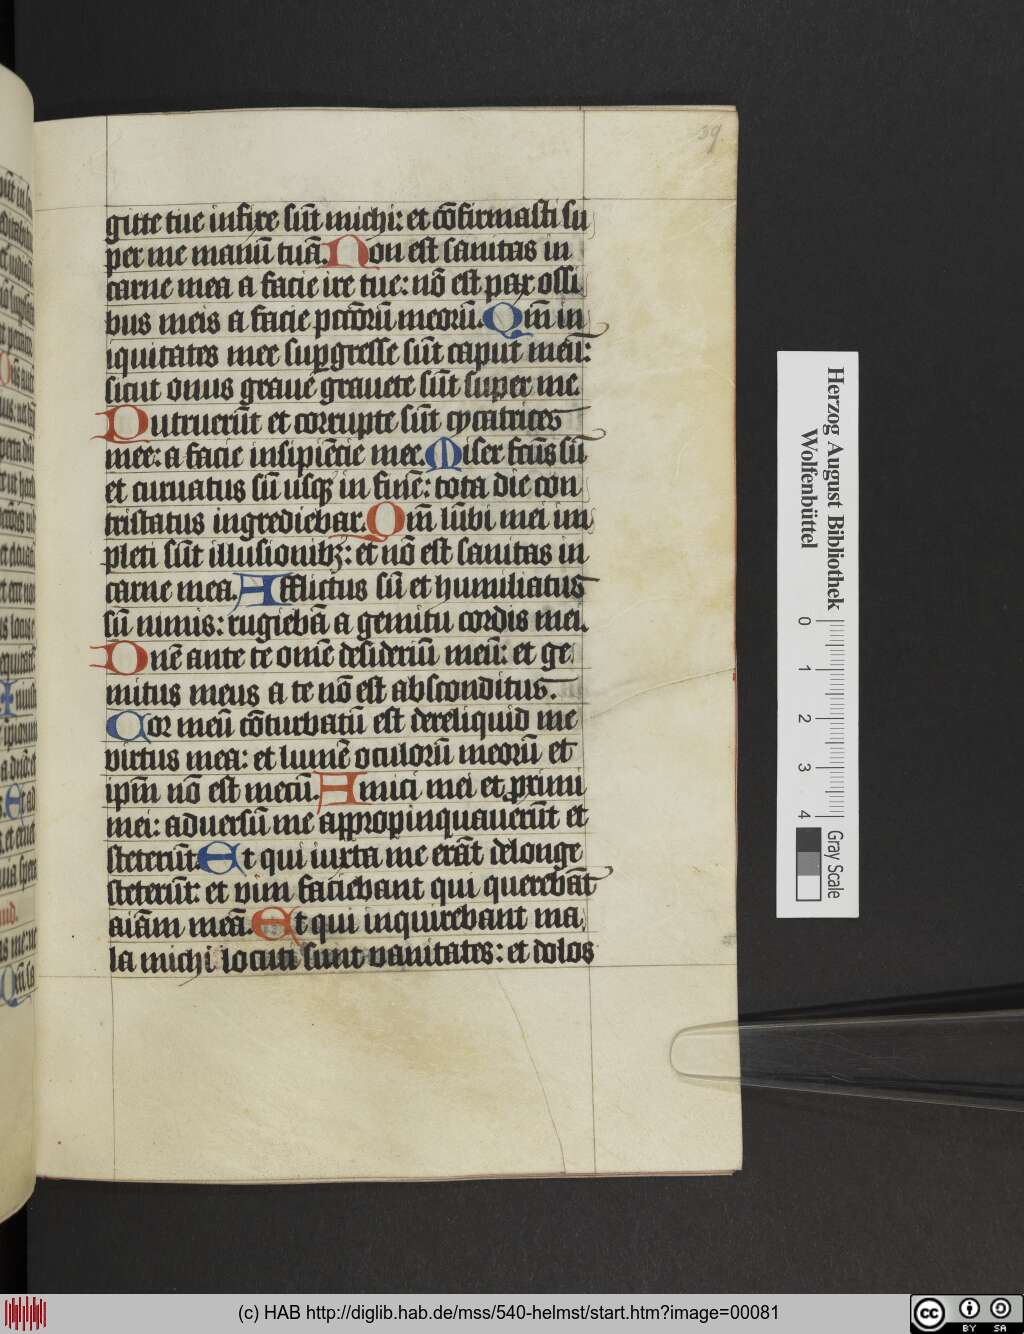 39
gitte tue infixe sūt michi: et cōfirmasti su
per me manū tuā. Non est sanitas in
carne mea a facie ire tue: nō est pax ossi
bus meis a facie pctōrū meorū. Qm̄ in
iquitates mee supgresse sūt caput meū:
sicut onus graue grauate sūt super me
Putruerūt et corrupte sūt cycatrices
mee: a facie insipiēcie mee. Miser fcūs sū
et curuatus sū usq; in finē: tota die con
tristatus ingrediebar. Qm̄ lūbi mei im
pleti sūt illusionibꝫ: et nō est sanitas in
carne mea. Afflictus sū et humiliatus
sū nimis: rugiebā a gemitu cordis mei.
Dne ante te omē desideriū meū: et ge
mitus meus a te nō est absconditus.
Cor meū cōturbatū est dereliquid me
virtus mea: et lumē oculorū meorū et
ipm̄ nō est mecū. Amici mei et ꝓximi
mei: aduersū me appropinquauerūt et
steterūt. Et qui iuxta me erāt delonge
steterūt: et vim faciebant qui querebāt
aīam meā. Et qui inquirebant ma
la michi locuti sunt vanitates: et dolos
Herzog August Bibliothek
Wolfenbüttel
0 1 2 3 4
Gray Scale
(c) HAB http://diglib.hab.de/mss/540-helmst/start.htm?image=00081
cc BY SA